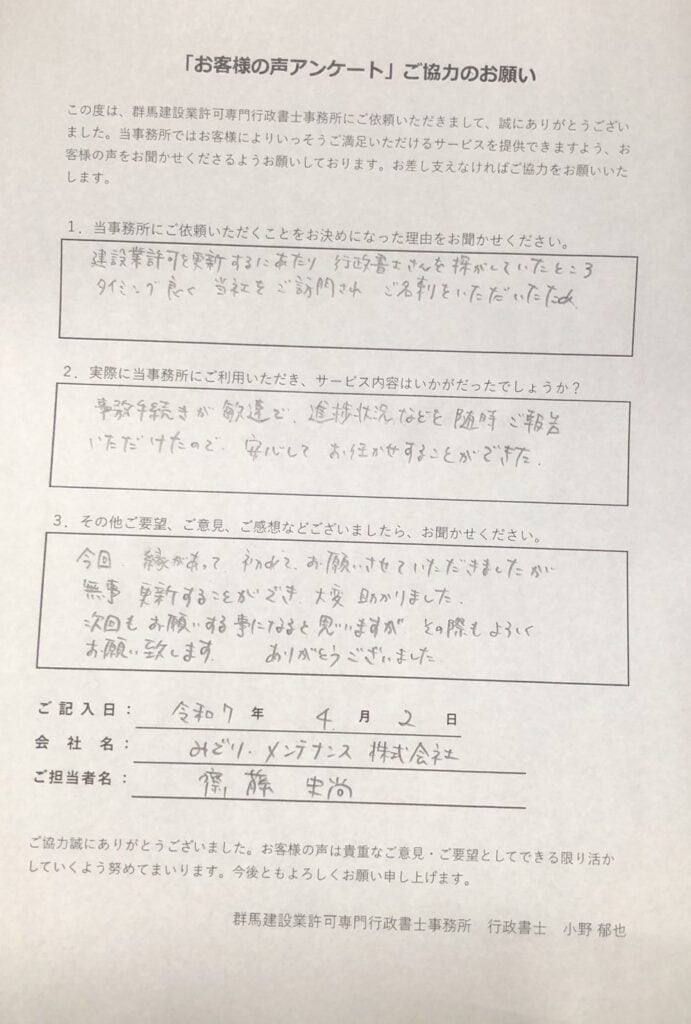 「お客様の声アンケート」ご協力のお願い
この度は、群馬建設業許可専門行政書士事務所にご依頼いただきまして、誠にありがとうござい
ました。当事務所ではお客様によりいっそうご満足いただけるサービスを提供できますよう、お
客様の声をお聞かせくださるようお願いしております。お差し支えなければご協力をお願いいた
します。
1．当事務所にご依頼いただくことをお決めになった理由をお聞かせください。
建設業許可を更新するにあたり 行政書士さんを探がしていたところ
タイミング良く 当社をご訪問され ご名刺をいただいたため
2．実際に当事務所にご利用いただき、サービス内容はいかがだったでしょうか？
事務手続きが敏速で、進捗状況などを随時ご報告
いただけたので、安心してお任かせすることができた.
3．その他ご要望、ご意見、ご感想などございましたら、お聞かせください。
今回、縁があって、初めて、お願いさせていただきましたが
無事 更新することができ、大変 助かりました.
次回も お願いする事になると思いますが その際もよろしく
お願い致します. ありがとうございました
ご記入日： 令和7 年 4 月 2 日
会 社 名： みどり・メンテナンス 株式会社
ご担当者名： 齋藤 史尚
ご協力誠にありがとうございました。お客様の声は貴重なご意見・ご要望としてできる限り活か
していくよう努めてまいります。今後ともよろしくお願い申し上げます。
群馬建設業許可専門行政書士事務所 行政書士 小野 郁也